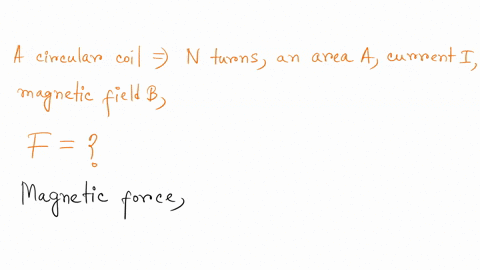 A circular coil ⇒ N turns, an area A, current I,
magnetic field B,
F = ?
Magnetic force,